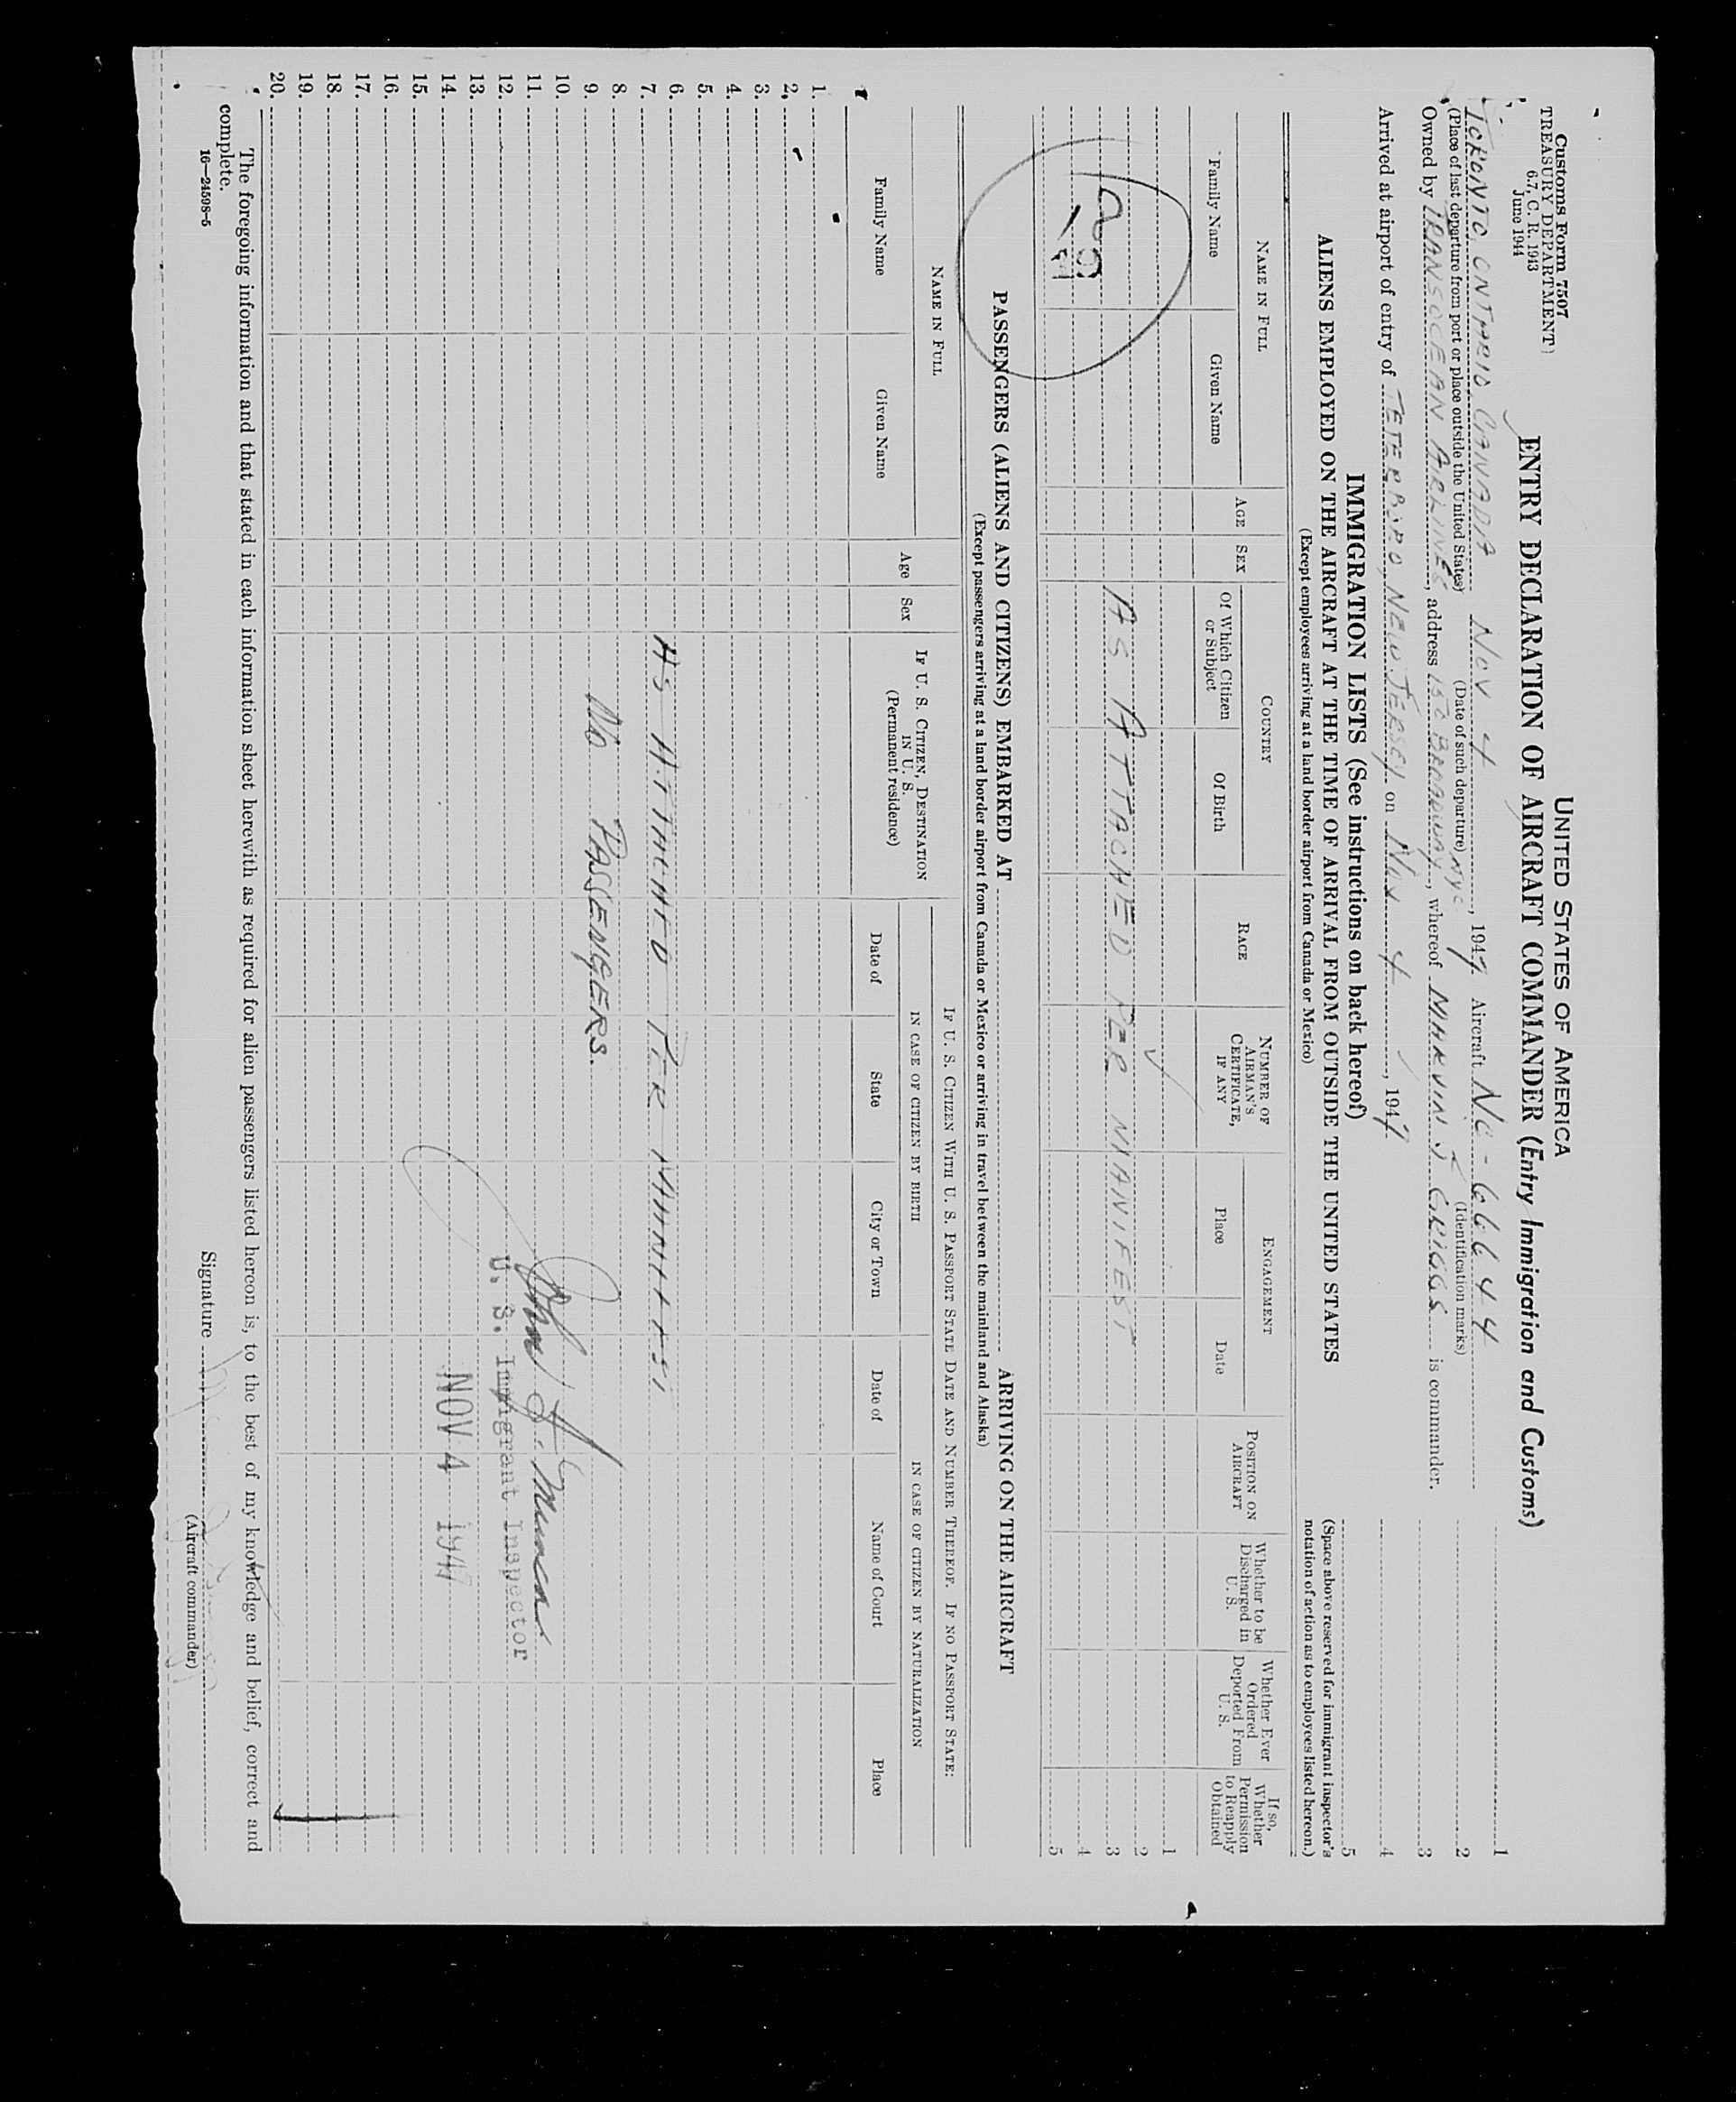 Customs Form 7507
TREASURY DEPARTMENT
6.7, C. R. 1943
June 1944
UNITED STATES OF AMERICA
ENTRY DECLARATION OF AIRCRAFT COMMANDER (Entry Immigration and Customs)
TORONTO, ONTARIO CANADA NOV 4, 1947 Aircraft NC-66644
(Place of last departure from port or place outside the United States) (Date of such departure) (Identification marks)
Owned by TRANSOCEAN AIRLINES, address 150 BROADWAY NYC, whereof MARVIN L GRIGGS is commander.
Arrived at airport of entry of TETERBORO, NEW JERSEY on Nov 4, 1947
1
2
3
4
5
(Space above reserved for immigrant inspector's notation of action as to employees listed hereon.)
IMMIGRATION LISTS (See instructions on back hereof)
ALIENS EMPLOYED ON THE AIRCRAFT AT THE TIME OF ARRIVAL FROM OUTSIDE THE UNITED STATES
(Except employees arriving at a land border airport from Canada or Mexico)
NAME IN FULL
Family Name
Given Name
AGE
SEX
COUNTRY
Of Which Citizen or Subject
Of Birth
RACE
NUMBER OF AIRMAN'S CERTIFICATE, IF ANY
ENGAGEMENT
Place
Date
POSITION ON AIRCRAFT
Whether to be Discharged in U. S.
Whether Ever Ordered Deported From U. S.
If so, Whether Permission to Reapply Obtained
1
2
AS ATTACHED PER MANIFEST 3
4
5
PASSENGERS (ALIENS AND CITIZENS) EMBARKED AT ARRIVING ON THE AIRCRAFT
(Except passengers arriving at a land border airport from Canada or Mexico or arriving in travel between the mainland and Alaska)
NAME IN FULL
Family Name
Given Name
Age
Sex
IF U. S. CITIZEN, DESTINATION IN U. S.
(Permanent residence)
IF U. S. CITIZEN WITH U. S. PASSPORT STATE DATE AND NUMBER THEREOF. IF NO PASSPORT STATE:
IN CASE OF CITIZEN BY BIRTH
IN CASE OF CITIZEN BY NATURALIZATION
Date of
State
City or Town
Date of
Name of Court
Place
1.
2.
3.
4.
5.
6.
7. AS ATTACHED PER MANIFEST
8.
9. No PASSENGERS.
10.
11.
12. U. S. Immigrant Inspector
13.
14. NOV 4 1947
15.
16.
17.
18.
19.
20.
The foregoing information and that stated in each information sheet herewith as required for alien passengers listed hereon is, to the best of my knowledge and belief, correct and
complete.
16—24598-5
Signature
(Aircraft commander)